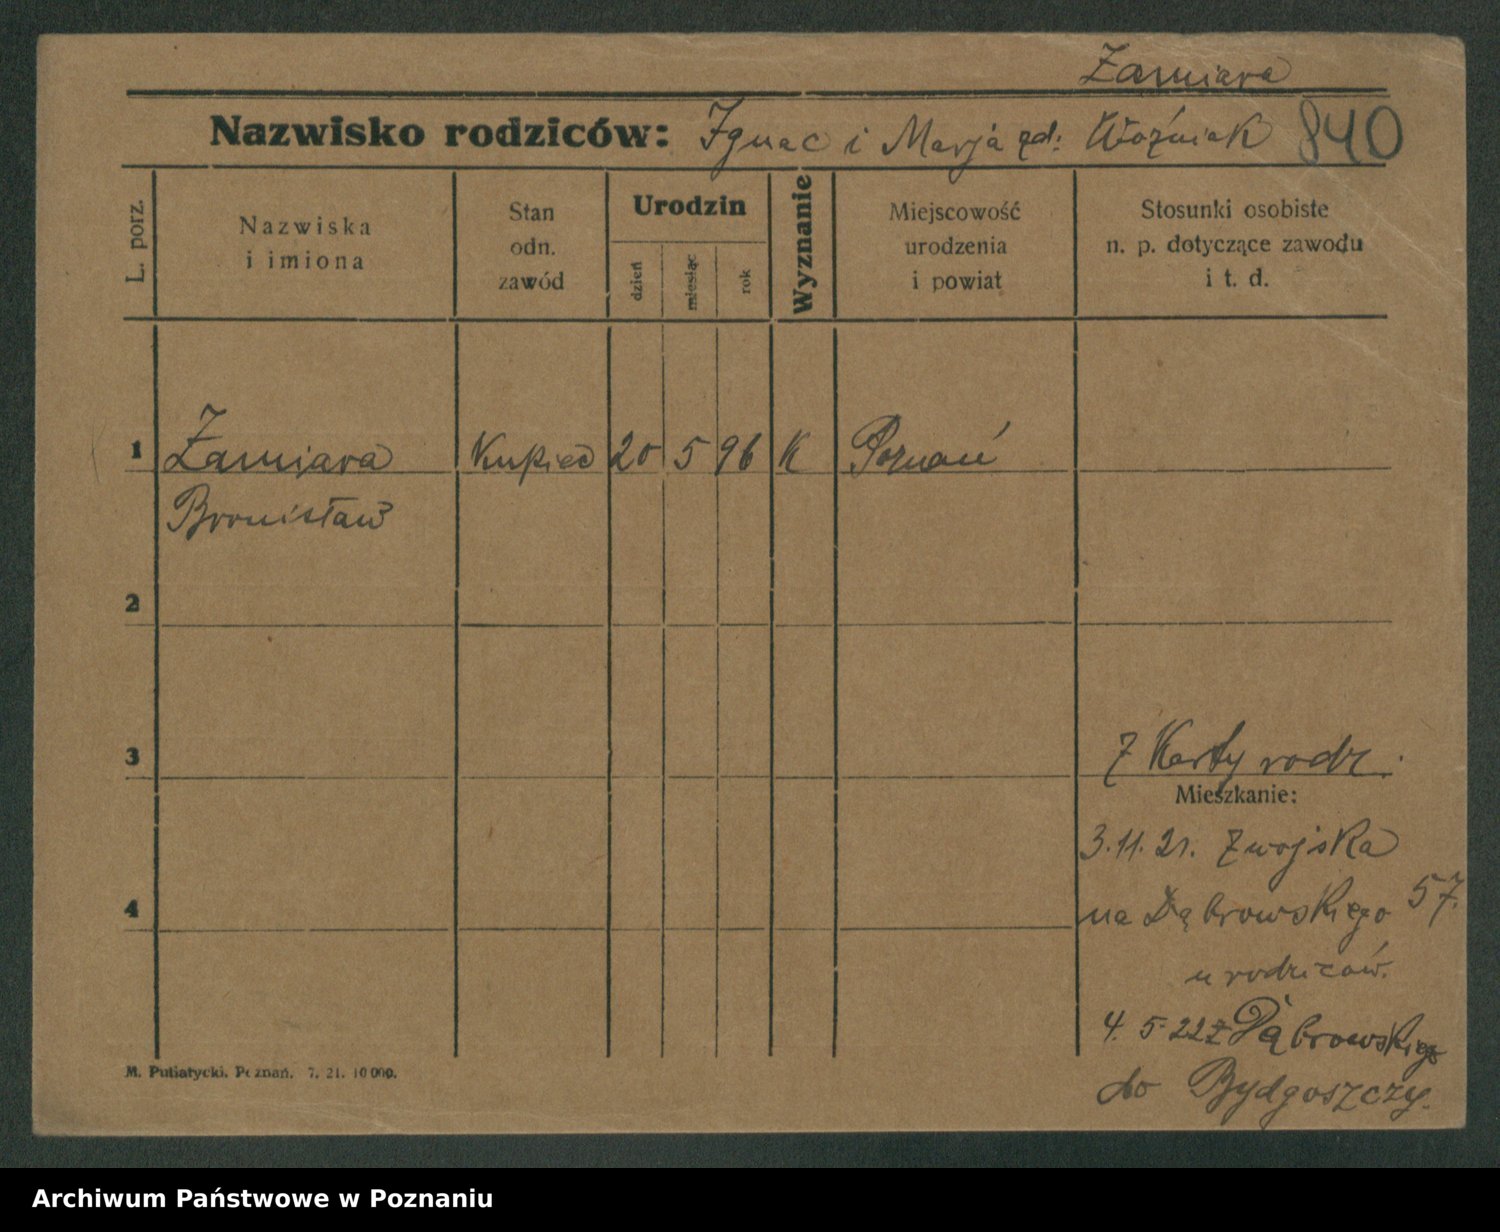 Żamiara
Nazwisko rodziców: Ignac i Marja zd: Woźniak 840
L. porz.
Nazwiska
i imiona
Stan
odn.
zawód
Urodzin
dzień
miesiąc
rok
Wyznanie
Miejscowość
urodzenia
i powiat
Stosunki osobiste
n. p. dotyczące zawodu
i t. d.
1 Żamiara Kupiec 20 5 96 K Poznań
Bronisław
2
3
Z Karty rodz.
Mieszkanie:
3.11.21. Z wojska
4
na Dąbrowskiego 57.
u rodziców.
4.5.22 z Dąbrowskiego
do Bydgoszczy.
M. Putiatycki. Poznań. 7. 21. 10 000.
Archiwum Państwowe w Poznaniu